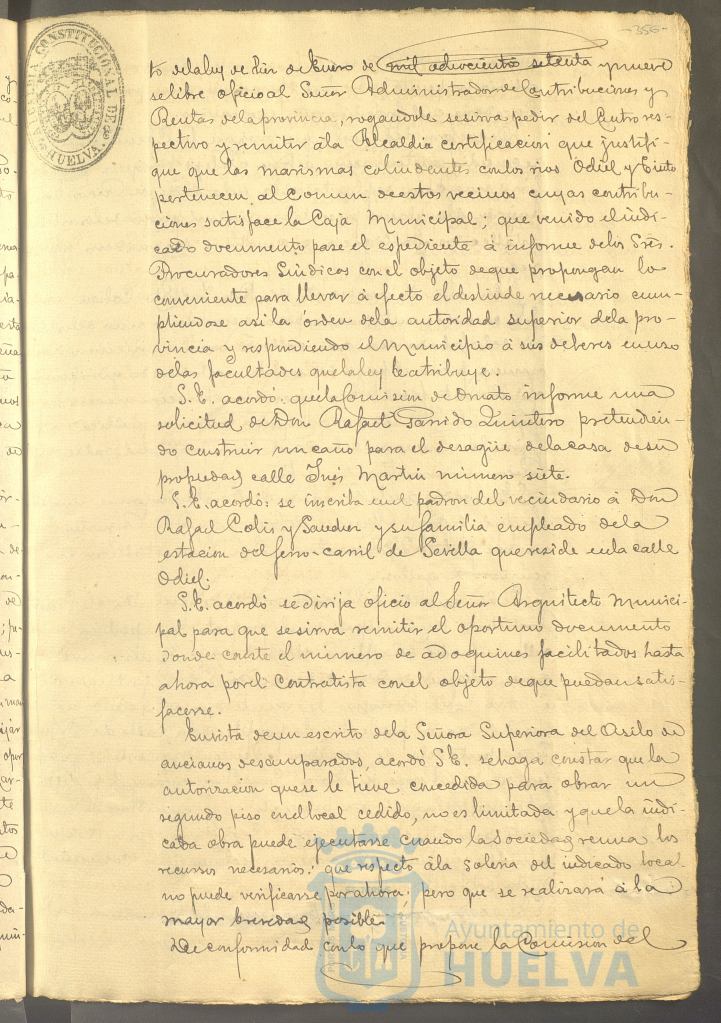 -356-
CONSTITUCIONAL DE
HUELVA.
to de la ley de diez de Enero de mil ochocientos setenta y nueve
se libre oficio al Señor Administrador de Contribuciones y
Rentas de la provincia, rogandole se sirva pedir del Centro res-
pectivo y remitir á la Alcaldia certificacion que justifi-
que que las marismas colindantes con los rios Odiel y Tinto
pertenecen al Comun de estos vecinos cuyas contribu-
ciones satisface la Caja Municipal; que venido el indi-
cado documento pase el espediente á informe de los Sres.
Procuradores Sindicos con el objeto de que propongan lo
conveniente para llevar á efecto el deslinde necesario cum-
pliendose asi la órden de la autoridad superior de la pro-
vincia y respondiendo el Municipio á sus deberes en uso
de las facultades que la ley le atribuye.
S.E. acordó: que la Comision de Ornato informe una
solicitud de Don Rafael Garrido Quintero pretendien-
do construir un caño para el desagüe de la casa de su
propiedad calle Inés Martin número siete.
S.E. acordó: se inscriba en el padron del vecindario á Don
Rafael Colis y Sanchez y su familia empleado de la
estacion del ferro-carril de Sevilla que reside en la calle
Odiel.
S.E. acordó se dirija oficio al Señor Arquitecto Munici-
pal para que se sirva remitir el oportuno documento
donde conste el número de adoquines facilitados hasta
ahora por el Contratista con el objeto de que puedan satis-
facerse.
En vista de un escrito de la Señora Superiora del Asilo de
ancianos desamparados, acordó S.E. se haga constar que la
autorizacion que se le tiene concedida para obrar un
segundo piso en el local cedido, no es limitada y que la indi-
cada obra puede ejecutarse cuando la Sociedad reuna los
recursos necesarios: que respecto á la soleria del indicado local
no puede verificarse por ahora: pero que se realizará á la
mayor brevedad posible.
De conformidad con lo que propone la Comision del
Ayuntamiento de
HUELVA